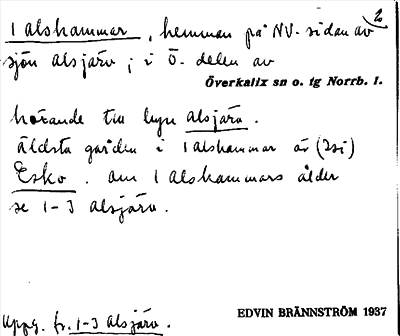 2
1 alshammar, hemman på NV-sidan av
sjön alsjärv; i Ö. delen av
Överkalix sn o. tg Norrb. l.
hörande till byn alsjärv.
Äldsta gården i 1 alshammar är (2si)
Esko. Om 1 alshammars ålder
se 1-3 alsjärv.
Uppg. fr. 1-3 alsjärv.
EDVIN BRÄNNSTRÖM 1937